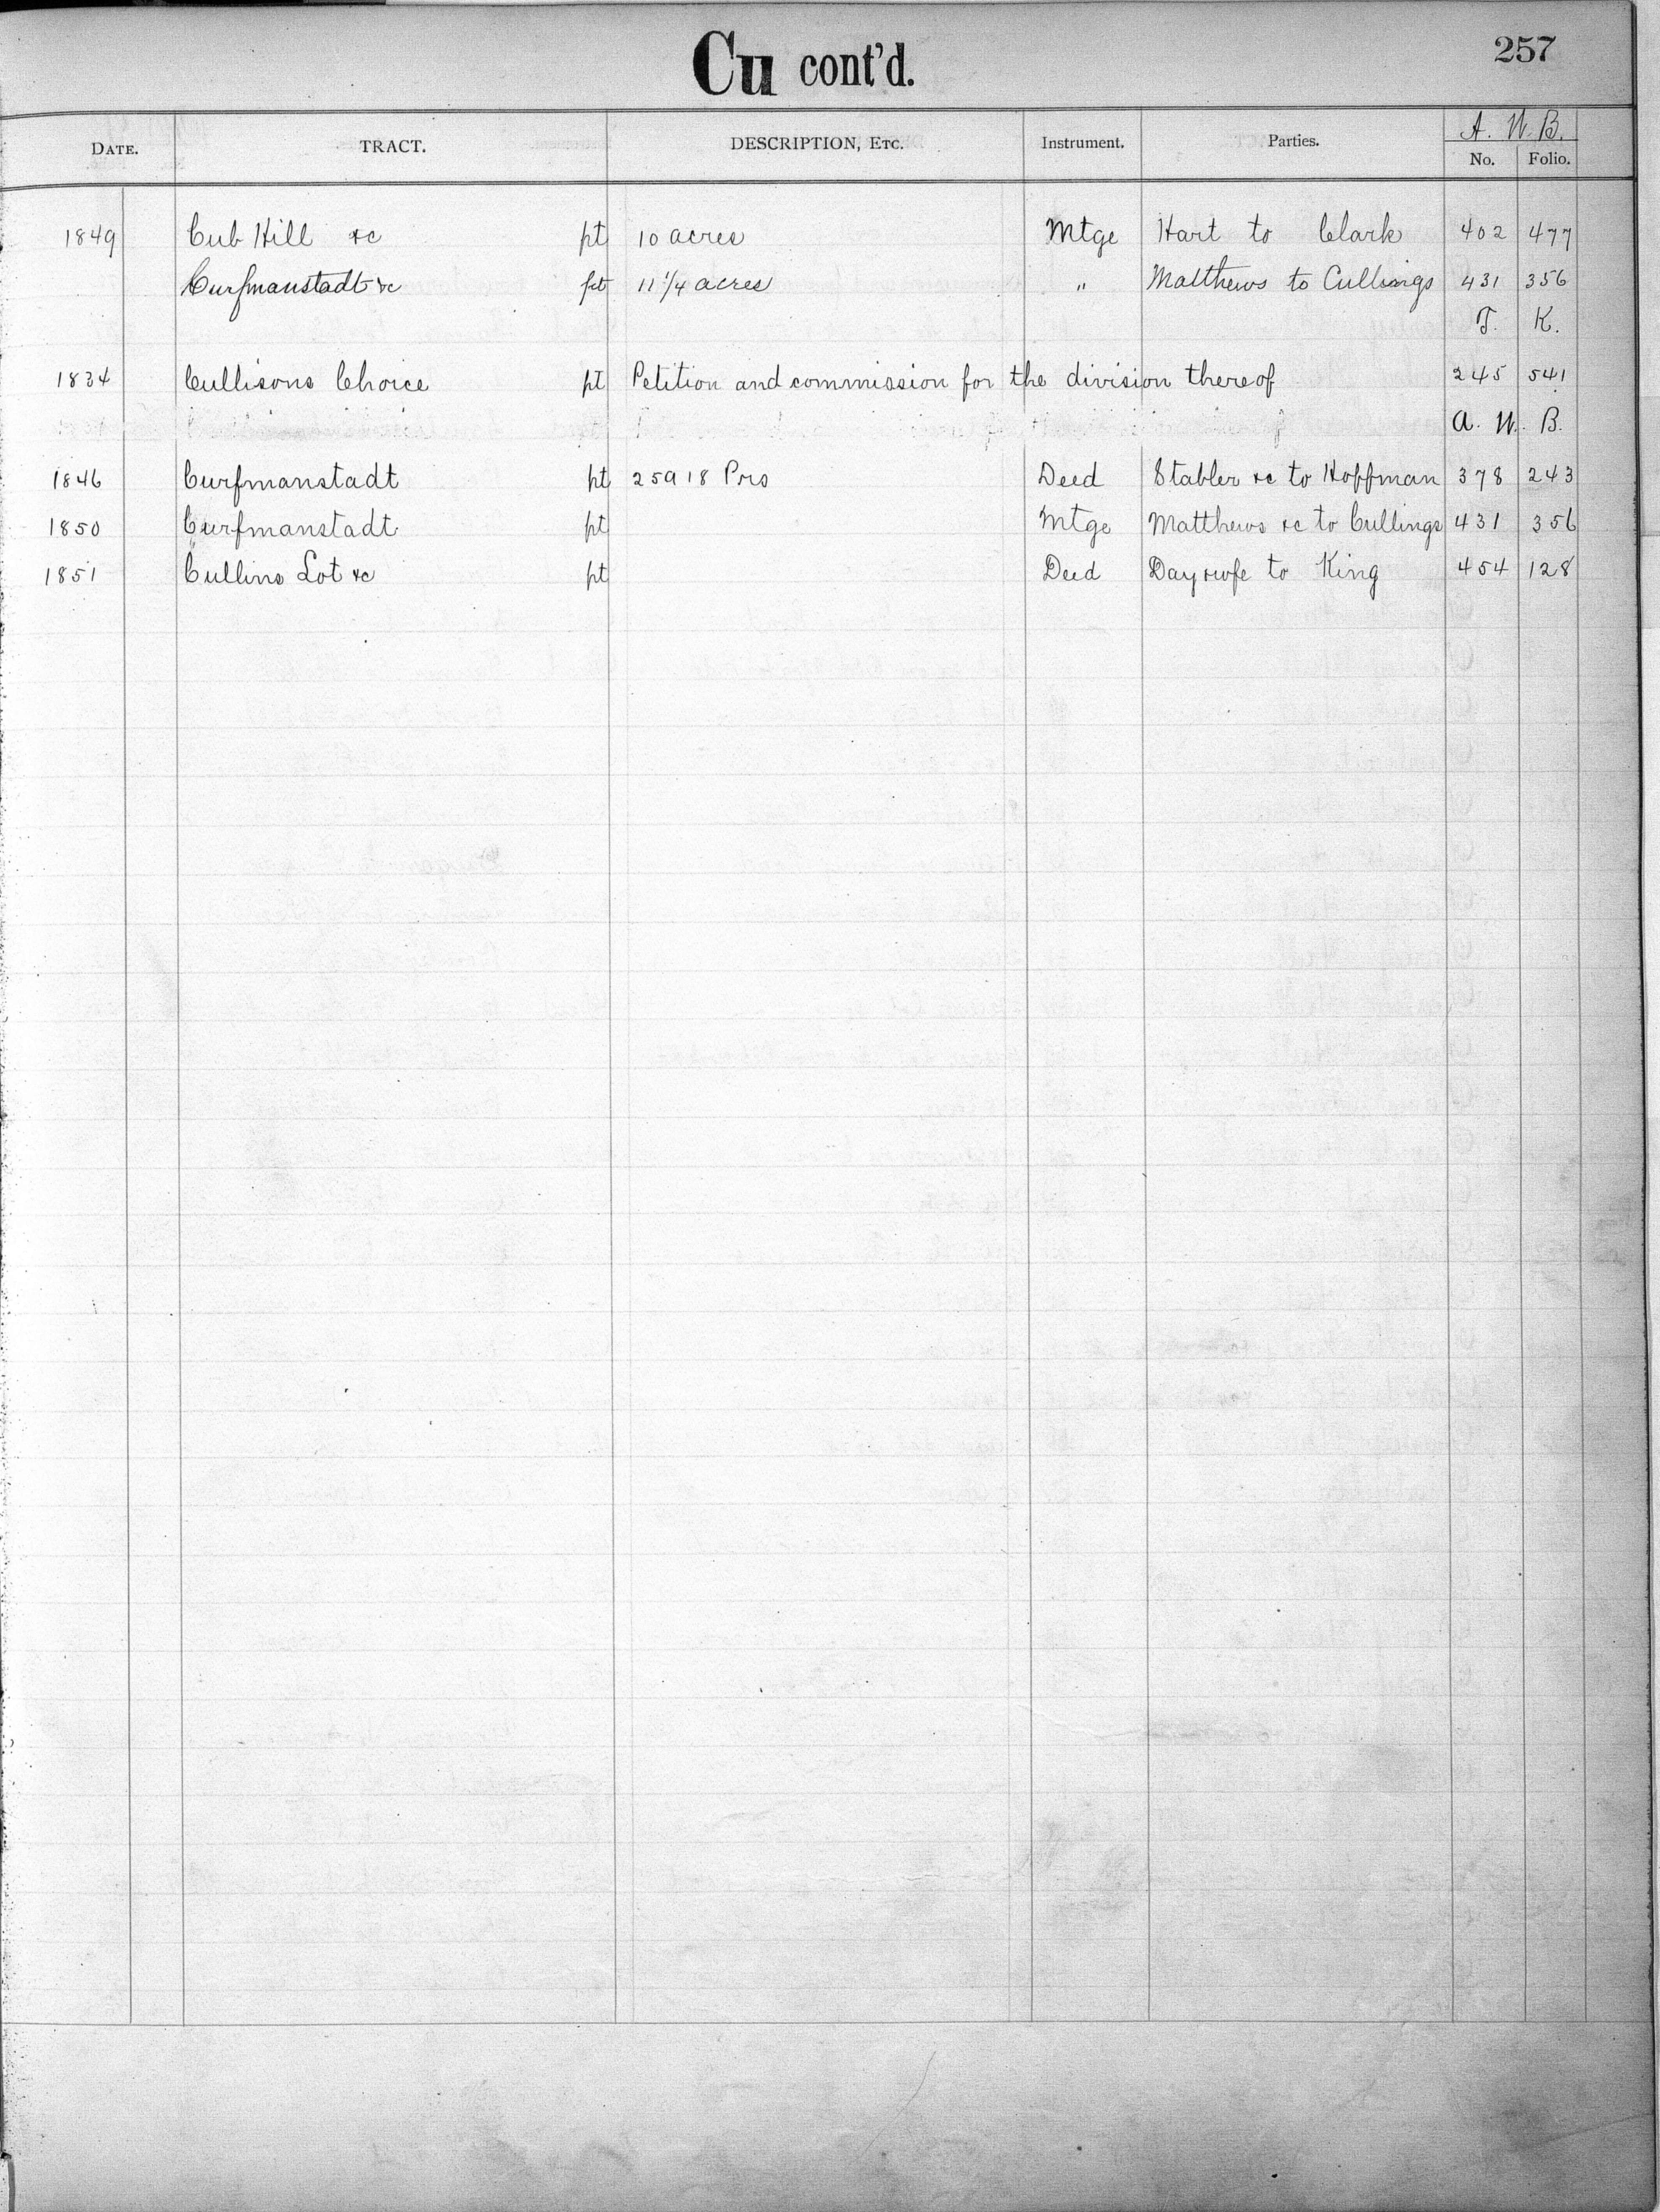 Cu cont'd.
257
A. W. B.
DATE. TRACT. DESCRIPTION, ETC. Instrument. Parties. No. Folio.
1849 Cub Hill &c pt 10 acres Mtge Hart to Clark 402 477
Curfmanstadt &c pt 11 1/4 acres " Matthews to Cullings 431 356
T. K.
1834 Cullisons Choice pt Petition and commission for the division thereof 245 541
A. W. B.
1846 Curfmanstadt pt 25a 18 Prs Deed Stabler &c to Hoffman 378 243
1850 Curfmanstadt pt Mtge Matthews &c to Cullings 431 356
1851 Cullins Lot &c pt Deed Day & wife to King 454 128